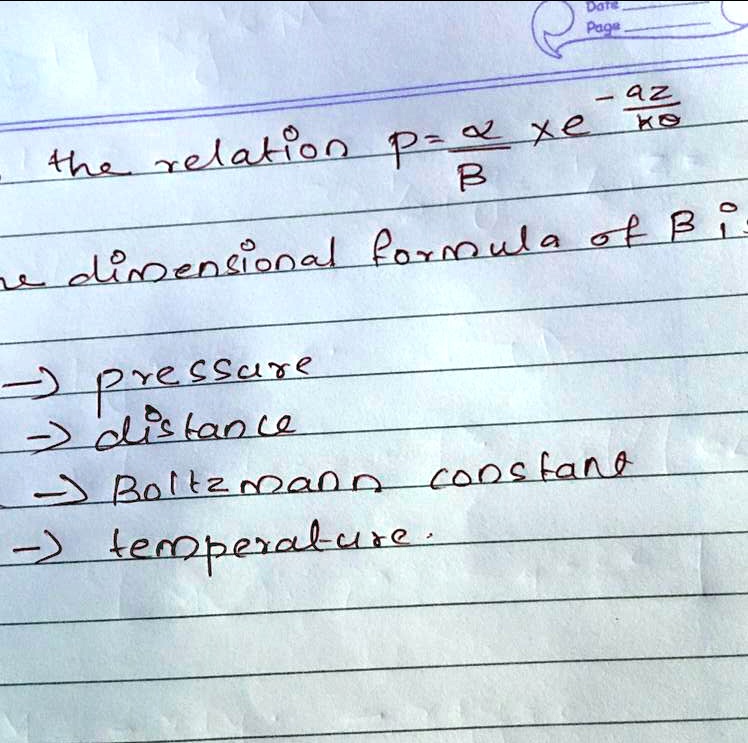 Date
Page
the relation p = α/β × e^(-az/kθ)
dimensional formula of β is
→ pressure
→ distance
→ Boltzmann constant
→ temperature.